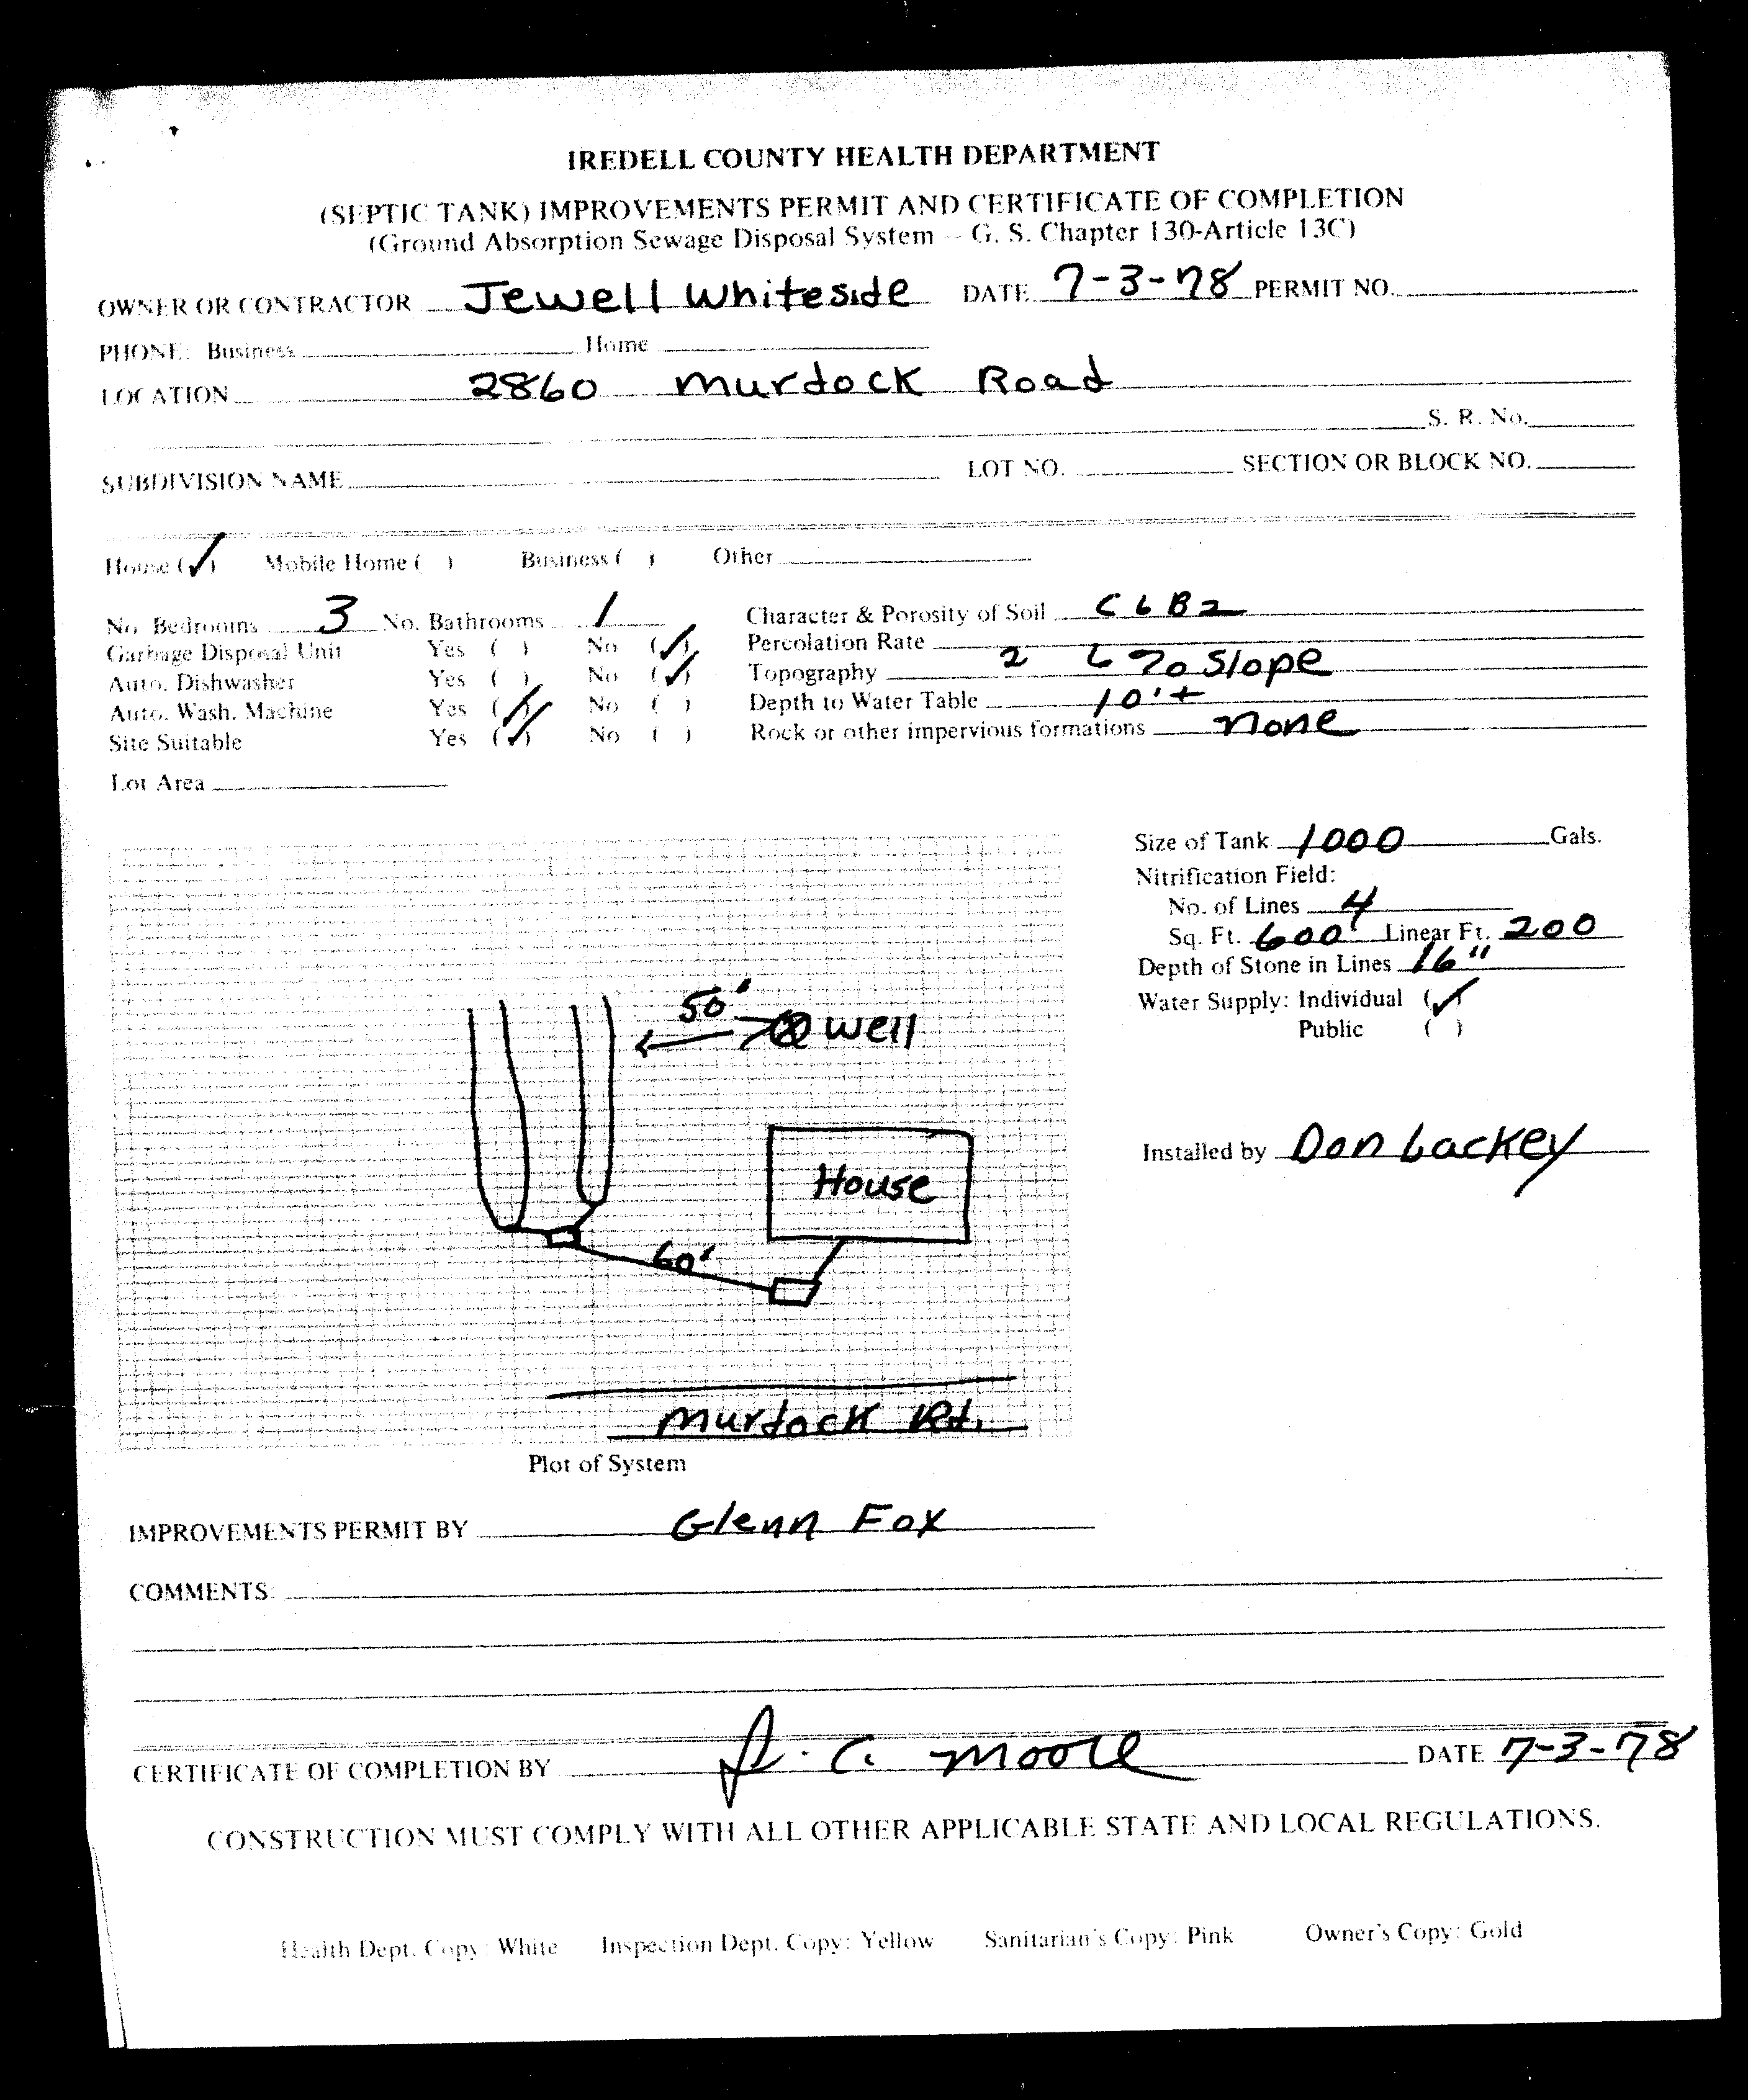 IREDELL COUNTY HEALTH DEPARTMENT
(SEPTIC TANK) IMPROVEMENTS PERMIT AND CERTIFICATE OF COMPLETION
(Ground Absorption Sewage Disposal System – G. S. Chapter 130-Article 13C)
OWNER OR CONTRACTOR Jewell Whiteside DATE 7-3-78 PERMIT NO.
PHONE: Business Home
LOCATION 2860 Murdock Road
S. R. No.
SUBDIVISION NAME LOT NO. SECTION OR BLOCK NO.
House (✓) Mobile Home ( ) Business ( ) Other
No. Bedrooms 3 No. Bathrooms 1 Character & Porosity of Soil C L B 2
Garbage Disposal Unit Yes ( ) No (✓) Percolation Rate
Auto. Dishwasher Yes ( ) No (✓) Topography 2 6 % Slope
Auto. Wash. Machine Yes (✓) No ( ) Depth to Water Table 10'+
Site Suitable Yes (✓) No ( ) Rock or other impervious formations none
Lot Area
Size of Tank 1000 Gals.
Nitrification Field:
No. of Lines 4
Sq. Ft. 600' Linear Ft. 200
Depth of Stone in Lines 16"
Water Supply: Individual (✓)
Public ( )
50' well
Installed by Don Lackey
House
60'
Murdock Rd.
Plot of System
IMPROVEMENTS PERMIT BY Glenn Fox
COMMENTS:
CERTIFICATE OF COMPLETION BY C. Moore DATE 7-3-78
CONSTRUCTION MUST COMPLY WITH ALL OTHER APPLICABLE STATE AND LOCAL REGULATIONS.
Health Dept. Copy: White Inspection Dept. Copy: Yellow Sanitarian's Copy: Pink Owner's Copy: Gold